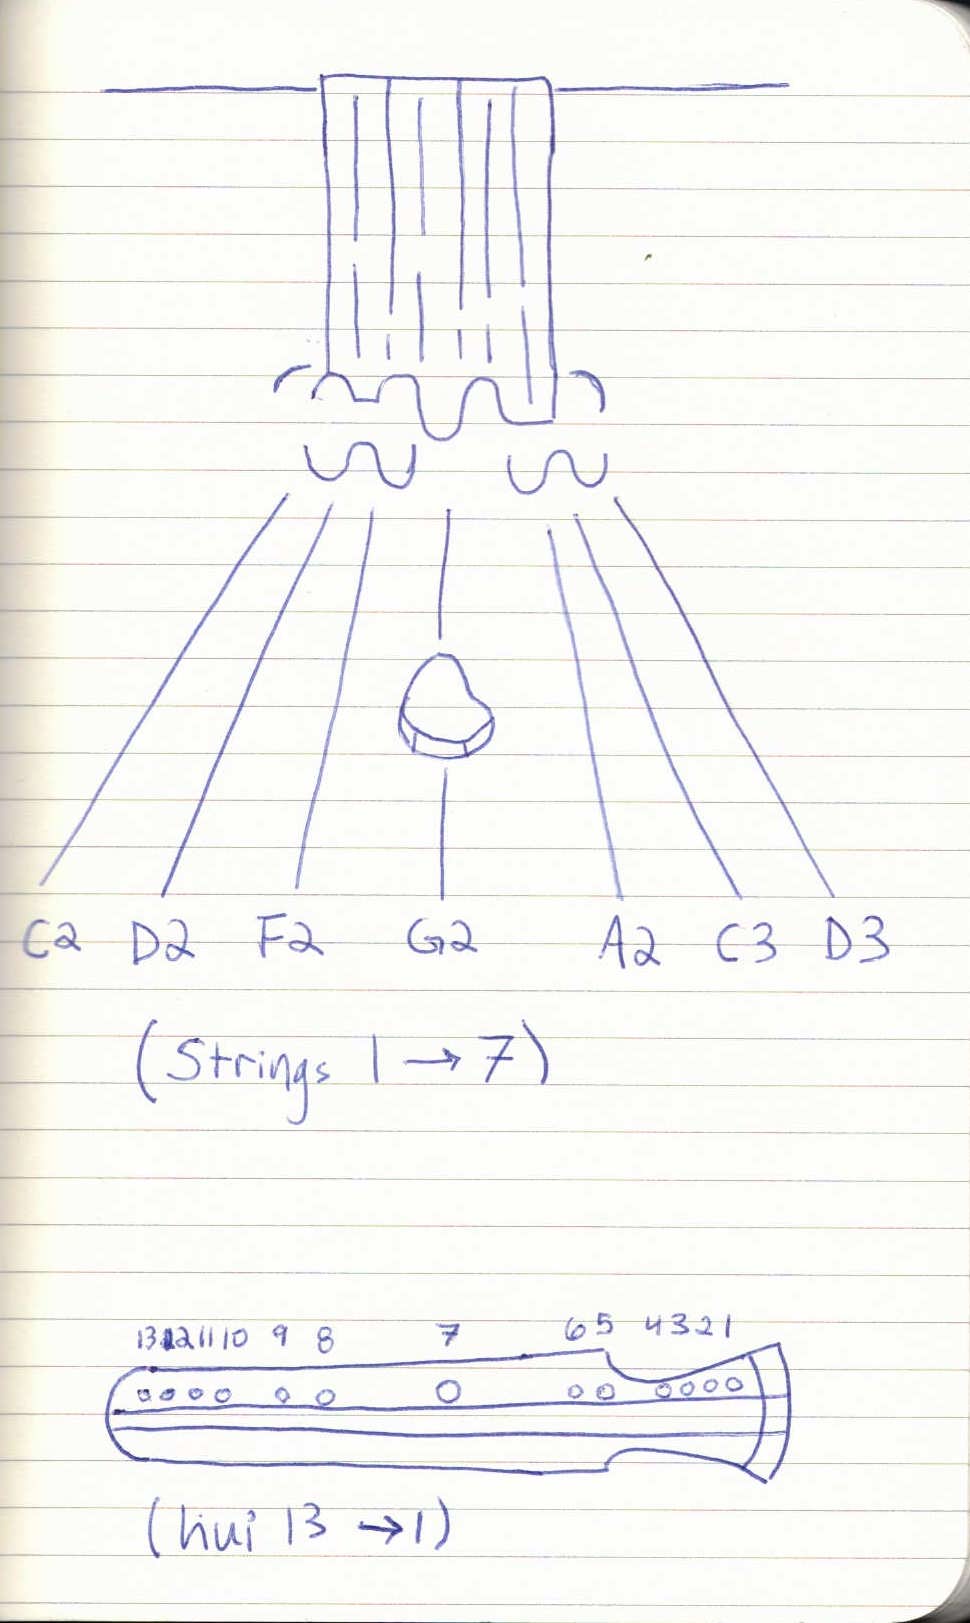 C2 D2 F2 G2 A2 C3 D3
(Strings 1 → 7)
13 12 11 10 9 8 7 6 5 4 3 2 1
(hui 13 → 1)